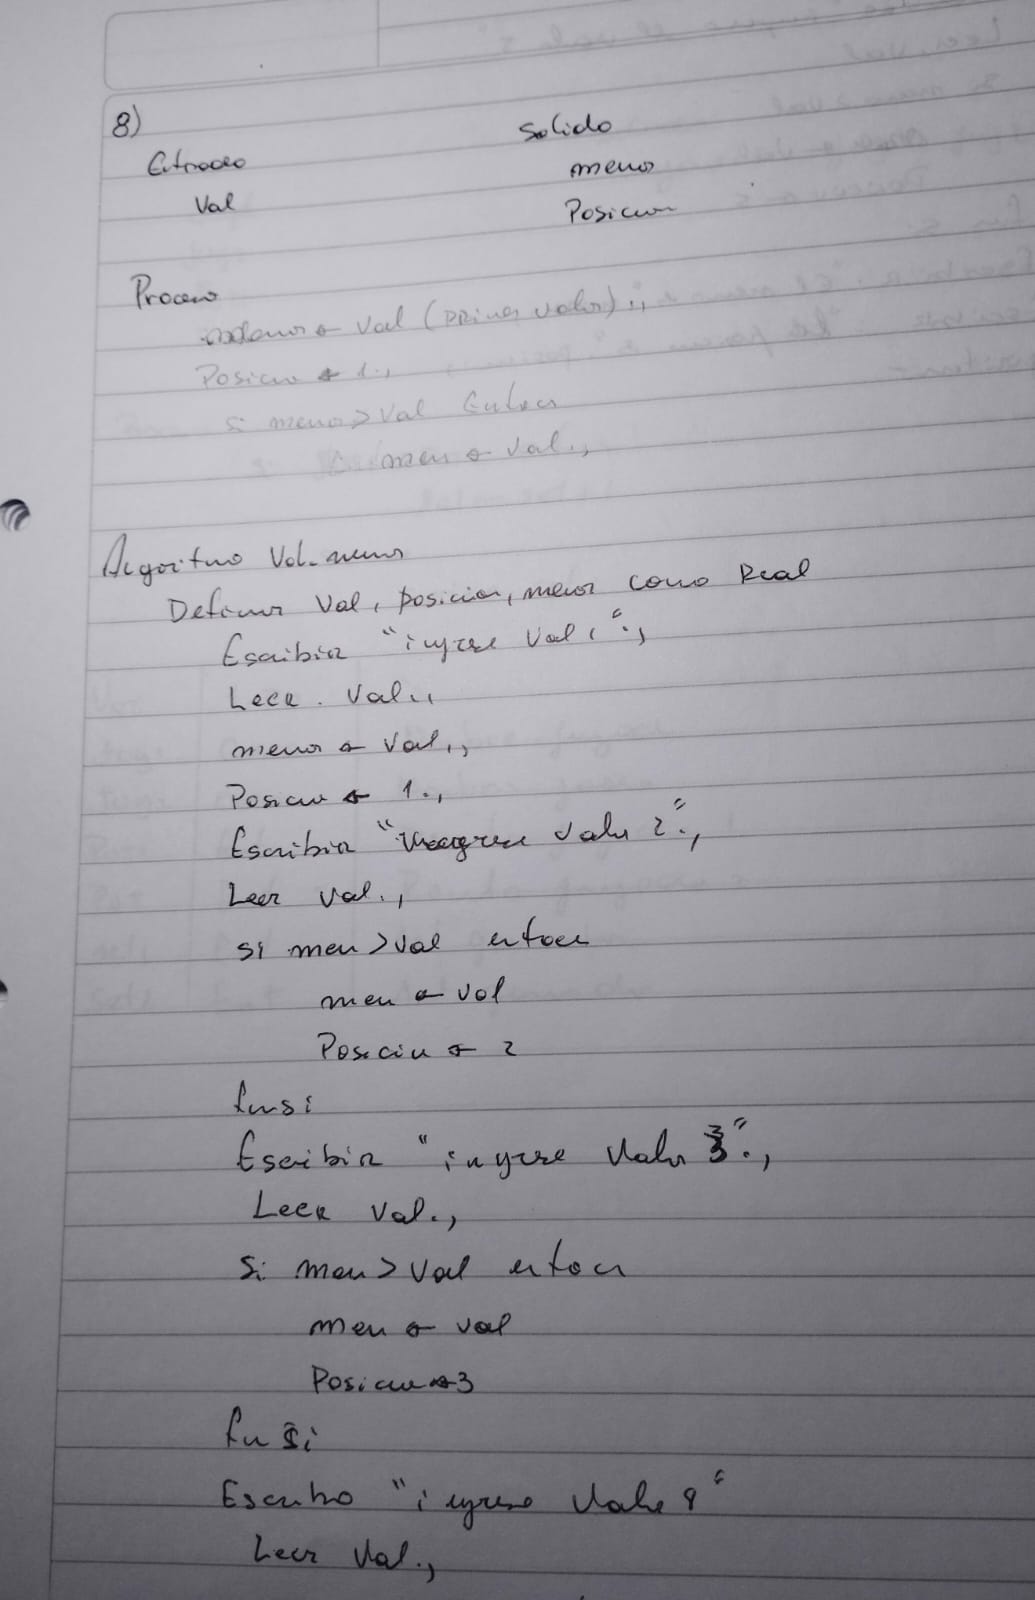 8)
Entrada Salida
Val menor
Posicion
Proceso
menor ← Val (primer valor).,
Posicion ← 1.,
si menor > Val Entonces
menor ← Val.,
Algoritmo Val_menor
Definir Val, posicion, menor como Real
Escribir "ingrese Val 1".,
Leer Val.,
menor ← Val.,
Posicion ← 1.,
Escribir " valor 2".,
Leer Val.,
si men > Val entonces
men ← Val
Posicion ← 2
finsi
Escribir "ingrese Valor 3".,
Leer Val.,
Si men > Val entonces
men ← val
Posicion ← 3
finSi
Escribir "ingrese Valor"
Leer Val.,